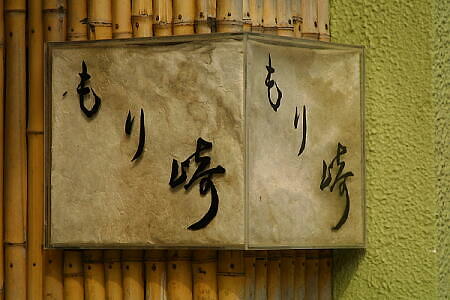 もり崎
もり崎